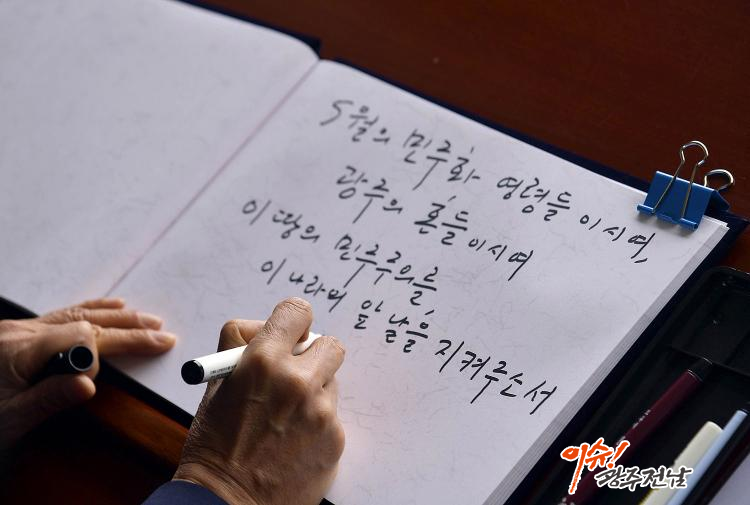 5월의 민주화 영령들이시여,
광주의 혼들이시여
이 땅의 민주주의를,
이 나라의 앞날을 지켜주소서
이슈!
광주전남